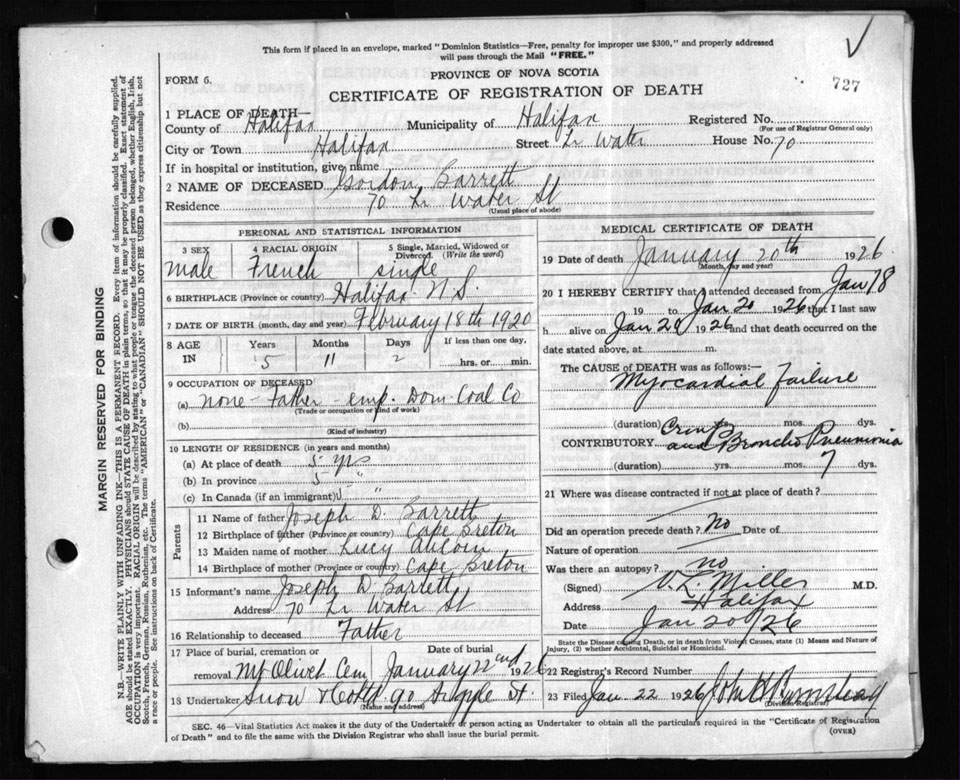 This form if placed in an envelope, marked "Dominion Statistics—Free, penalty for improper use $300," and properly addressed
will pass through the Mail "FREE."
FORM 6.
PROVINCE OF NOVA SCOTIA
727
CERTIFICATE OF REGISTRATION OF DEATH
1 PLACE OF DEATH—
County of Halifax Municipality of Halifax Registered No.
(For use of Registrar General only)
City or Town Halifax Street Lr Water House No. 70
If in hospital or institution, give name
2 NAME OF DECEASED Gordon Barrett
Residence 70 Lr Water St
(Usual place of abode)
PERSONAL AND STATISTICAL INFORMATION
3 SEX 4 RACIAL ORIGIN 5 Single, Married, Widowed or Divorced. (Write the word)
male French single
6 BIRTHPLACE (Province or country) Halifax N.S.
7 DATE OF BIRTH (month, day and year) February 18th 1920
8 AGE IN Years Months Days If less than one day,
5 11 2 hrs. or min.
9 OCCUPATION OF DECEASED
(a) none - Father - emp. Dom. Coal Co
(Trade or occupation or kind of work)
(b)
(Kind of industry)
10 LENGTH OF RESIDENCE (in years and months)
(a) At place of death 5 yrs
(b) In province 5 "
(c) In Canada (if an immigrant) "
Parents
11 Name of father Joseph D. Barrett
12 Birthplace of father (Province or country) Cape Breton
13 Maiden name of mother Lucy AuCoin
14 Birthplace of mother (Province or country) Cape Breton
15 Informant's name Joseph D Barrett
Address 70 Lr Water St
16 Relationship to deceased Father
17 Place of burial, cremation or removal Date of burial
Mt Olivet Cem January 22nd 1926
18 Undertaker Snow & Co Ltd 90 Argyle St.
(Name and address)
MEDICAL CERTIFICATE OF DEATH
19 Date of death January 20th 1926
(Month, day and year)
20 I HEREBY CERTIFY that I attended deceased from Jan 18
19 to Jan 20 1926 that I last saw
h alive on Jan 20 1926 and that death occurred on the
date stated above, at m.
The CAUSE OF DEATH was as follows:
Myocardial Failure
(duration) yrs. mos. dys.
CONTRIBUTORY Croup and Broncho Pneumonia
(duration) yrs. mos. 7 dys.
21 Where was disease contracted if not at place of death?
Did an operation precede death? No Date of
Nature of operation
Was there an autopsy? no
(Signed) V. L. Miller M.D.
Address Halifax
Date Jan 20/26
State the Disease causing Death, or in death from Violent Causes, state (1) Means and Nature of
Injury, (2) whether Accidental, Suicidal or Homicidal.
22 Registrar's Record Number
23 Filed Jan 22 1926 John
(Division Registrar)
SEC. 46—Vital Statistics Act makes it the duty of the Undertaker or person acting as Undertaker to obtain all the particulars required in the "Certificate of Registration
of Death" and to file the same with the Division Registrar who shall issue the burial permit.
(OVER)
MARGIN RESERVED FOR BINDING
N.B.—WRITE PLAINLY WITH UNFADING INK—THIS IS A PERMANENT RECORD. Every item of information should be carefully supplied.
AGE should be stated EXACTLY. PHYSICIANS should STATE CAUSE OF DEATH in plain terms, so that it may be properly classified. Exact statement of
OCCUPATION is very important. RACIAL ORIGIN will be described by stating to what people or tongue the deceased person belonged, whether English, Irish,
Scotch, French, German, Russian, Ruthenian, etc. The terms "AMERICAN" or "CANADIAN" SHOULD NOT BE USED as they express citizenship but not
a race or people. See instructions on back of Certificate.